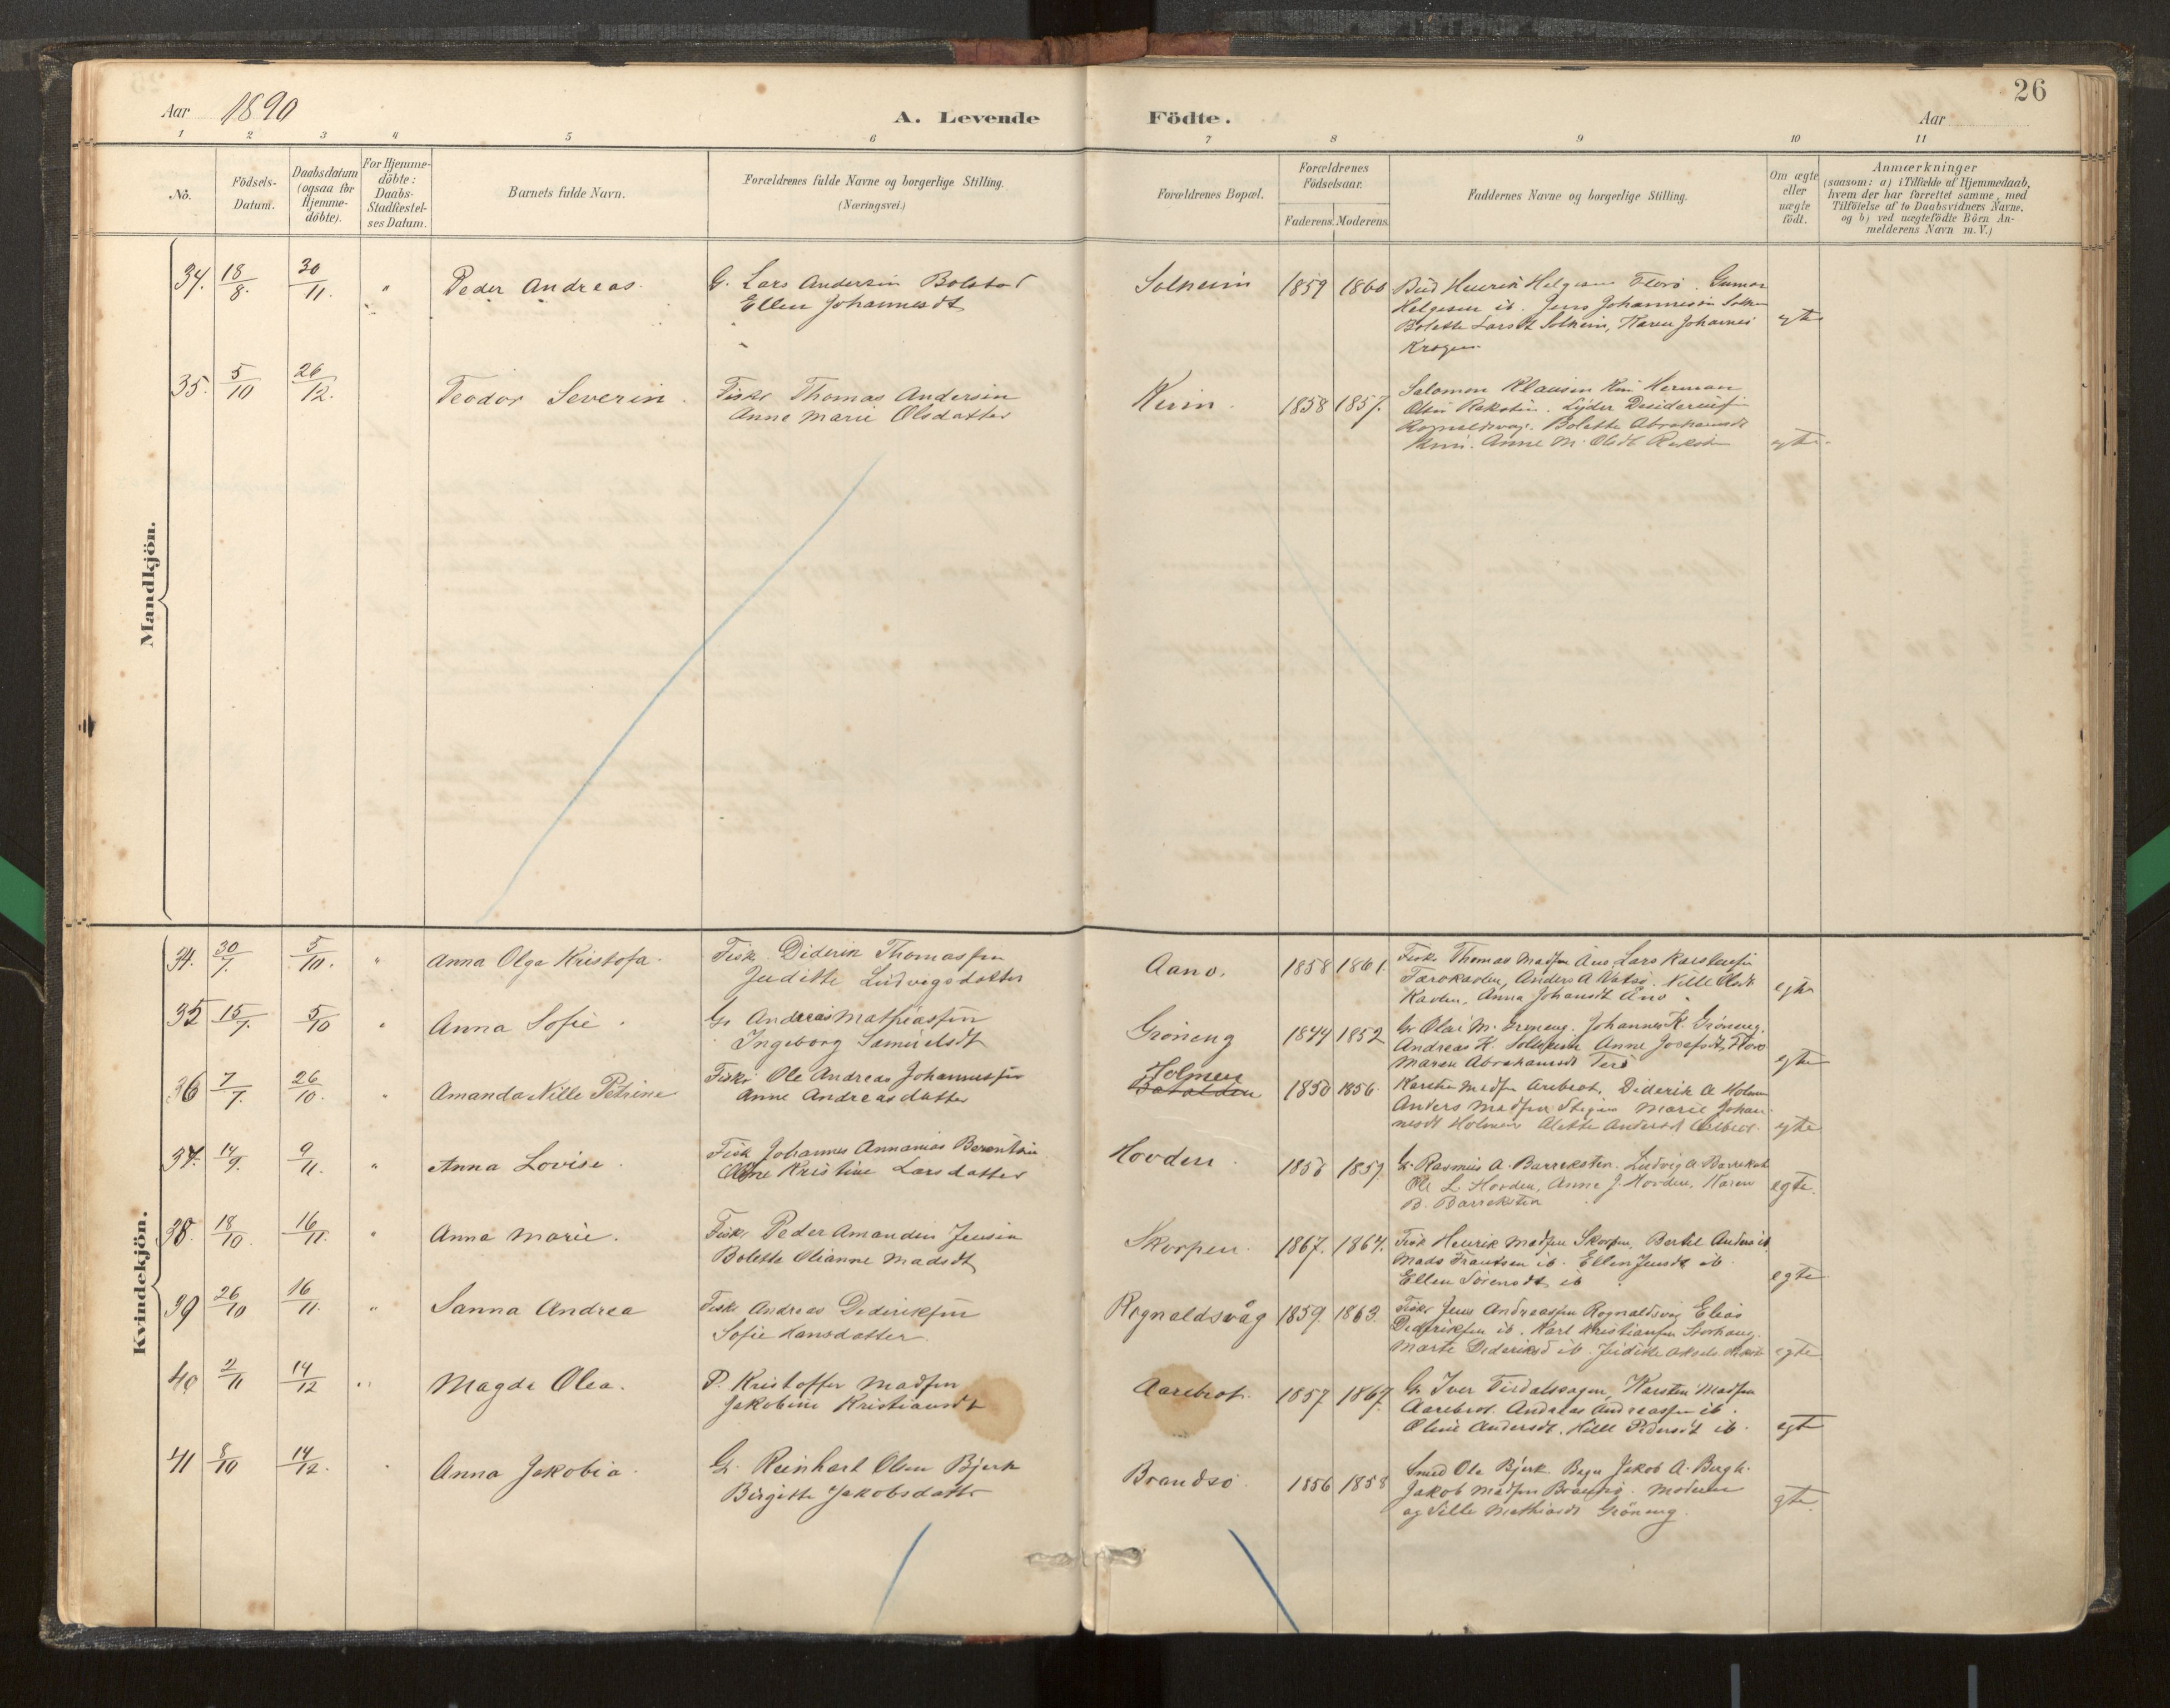 26
Aar 1890
A. Levende Födte.
Aar
1 2 3 4 5 6 7 8 9 10 11
No.
Födsels-
Datum.
Daabsdatum
(ogsaa for
Hjemme-
döbte).
For Hjemme-
döbte:
Daabs-
Stadfæstel-
ses Datum.
Barnets fulde Navn.
Forældrenes fulde Navne og borgerlige Stilling.
(Næringsvei.)
Forældrenes Bopæl.
Forældrenes
Födselsaar.
Faderens. Moderens.
Faddernes Navne og borgerlige Stilling.
Om ægte
eller
uægte
födt.
Anmærkninger
(saasom: a) i Tilfælde af Hjemmedaab,
hvem der har forrettet samme, med
Tilföielse af to Daabsvidners Navne,
og b) ved uægtefödte Börn An-
melderens Navn m. V.)
Mandkjön.
34. 18/8. 30/11. " Peder Andreas.
G. Lars Andersen Bolstad
Ellen Johannesdt
Solheim 1859 1860
Henrik Helgesen Florø. Gunnar
Helgesen ib. Jens Johannesen
Bolette Larsdt Solheim, Karen Johannes
egte
35. 5/10 26/12. Teodor Severin.
Fisker Thomas Andersen
Anne Marie Olsdatter
Kinn. 1858 1857.
Salomon Klausen Kinn Herman
Olsen Rekstin. Lyder
Bolette Abrahamsdt
Kinn. Anne M. Olsdt
egte.
Kvindekjön.
34. 30/7. 5/10. " Anna Olga Kristofa.
Fisk. Diderik Thomassen
Juditte Ludvigsdatter
Aanø. 1858 1861.
Fisk Thomas Madsen Lars Karstensen
Anders A Nille Olsdt
Anna Johansdt
egte
35 15/7. 5/10 " Anna Sofie.
Gr Andreas Mathiassen
Ingeborg Samuelsdt
Gröneng 1844 1852
Gr Olai M. Gröneng. Johannes K. Gröneng.
Andreas K. Solheim Anne Josefsdt, Florø
Maren Abrahamsdt
egte
36 7/7. 26/10. " Amanda Nille Petrine
Fisker Ole Andreas Johannessen
Anne Andreasdatter
Holmen
Batalden 1850 1856.
Karsten Madsen Arebrot. Diderik A Holmen
Anders Madsen Marie Johan-
nesdt Holmen Alette Andersdt
egte
37. 14/9. 9/11. " Anna Lovise.
Fisk Johannes Annanias Berentsen
Kristine Larsdatter
Hovden. 1859.
Gr. Rasmus A. Barrekstin. Ludvig A Barrekst
Ole L. Hovden, Anne J. Hovden, Karen
B. Barreksten
egte.
38. 18/10. 16/11. " Anna Marie.
Fisk. Peder Amandus Jensen
Bolette Olianne Madsdt
Skorpen. 1867. 1864.
Fisk Henrik Madsen Skorpen, Bertel Anders ib.
Mads Frantsen ib. Ellen Jensdt ib.
Ellen Sörensdt ib
egte
39 26/10 16/11. " Sanna Andrea
Fisk. Andreas Dideriksen
Sofie Hansdatter.
Rognaldsvåg 1859. 1863.
Fisk Jens Andreassen Rognaldsvåg Elias
Dideriksen ib. Karl Kristiansen Storhaug.
Marte Dideriksd ib. Juditte
egte
40 2/11 14/12 " Magda Olea.
P. Kristoffer Madsen
Jakobine Kristiansdt
Aarebrot. 1857 1867.
Gr Iver Karsten Madsen
Aarebrot. Andreas Andreassen ib.
Oline Andersdt. Nille Pedersdt ib.
egte
41 8/10 14/12. " Anna Jakobia.
G. Reinhart Olsen Bjerk
Birgitte Jakobsdatter
Brandsø. 1856 1858
Smed Ole Bjerk. Jakob A. Bergh.
Jakob Madsen Brandsø. Moderen
og Nille Mathiasdt Gröneng.
gte.